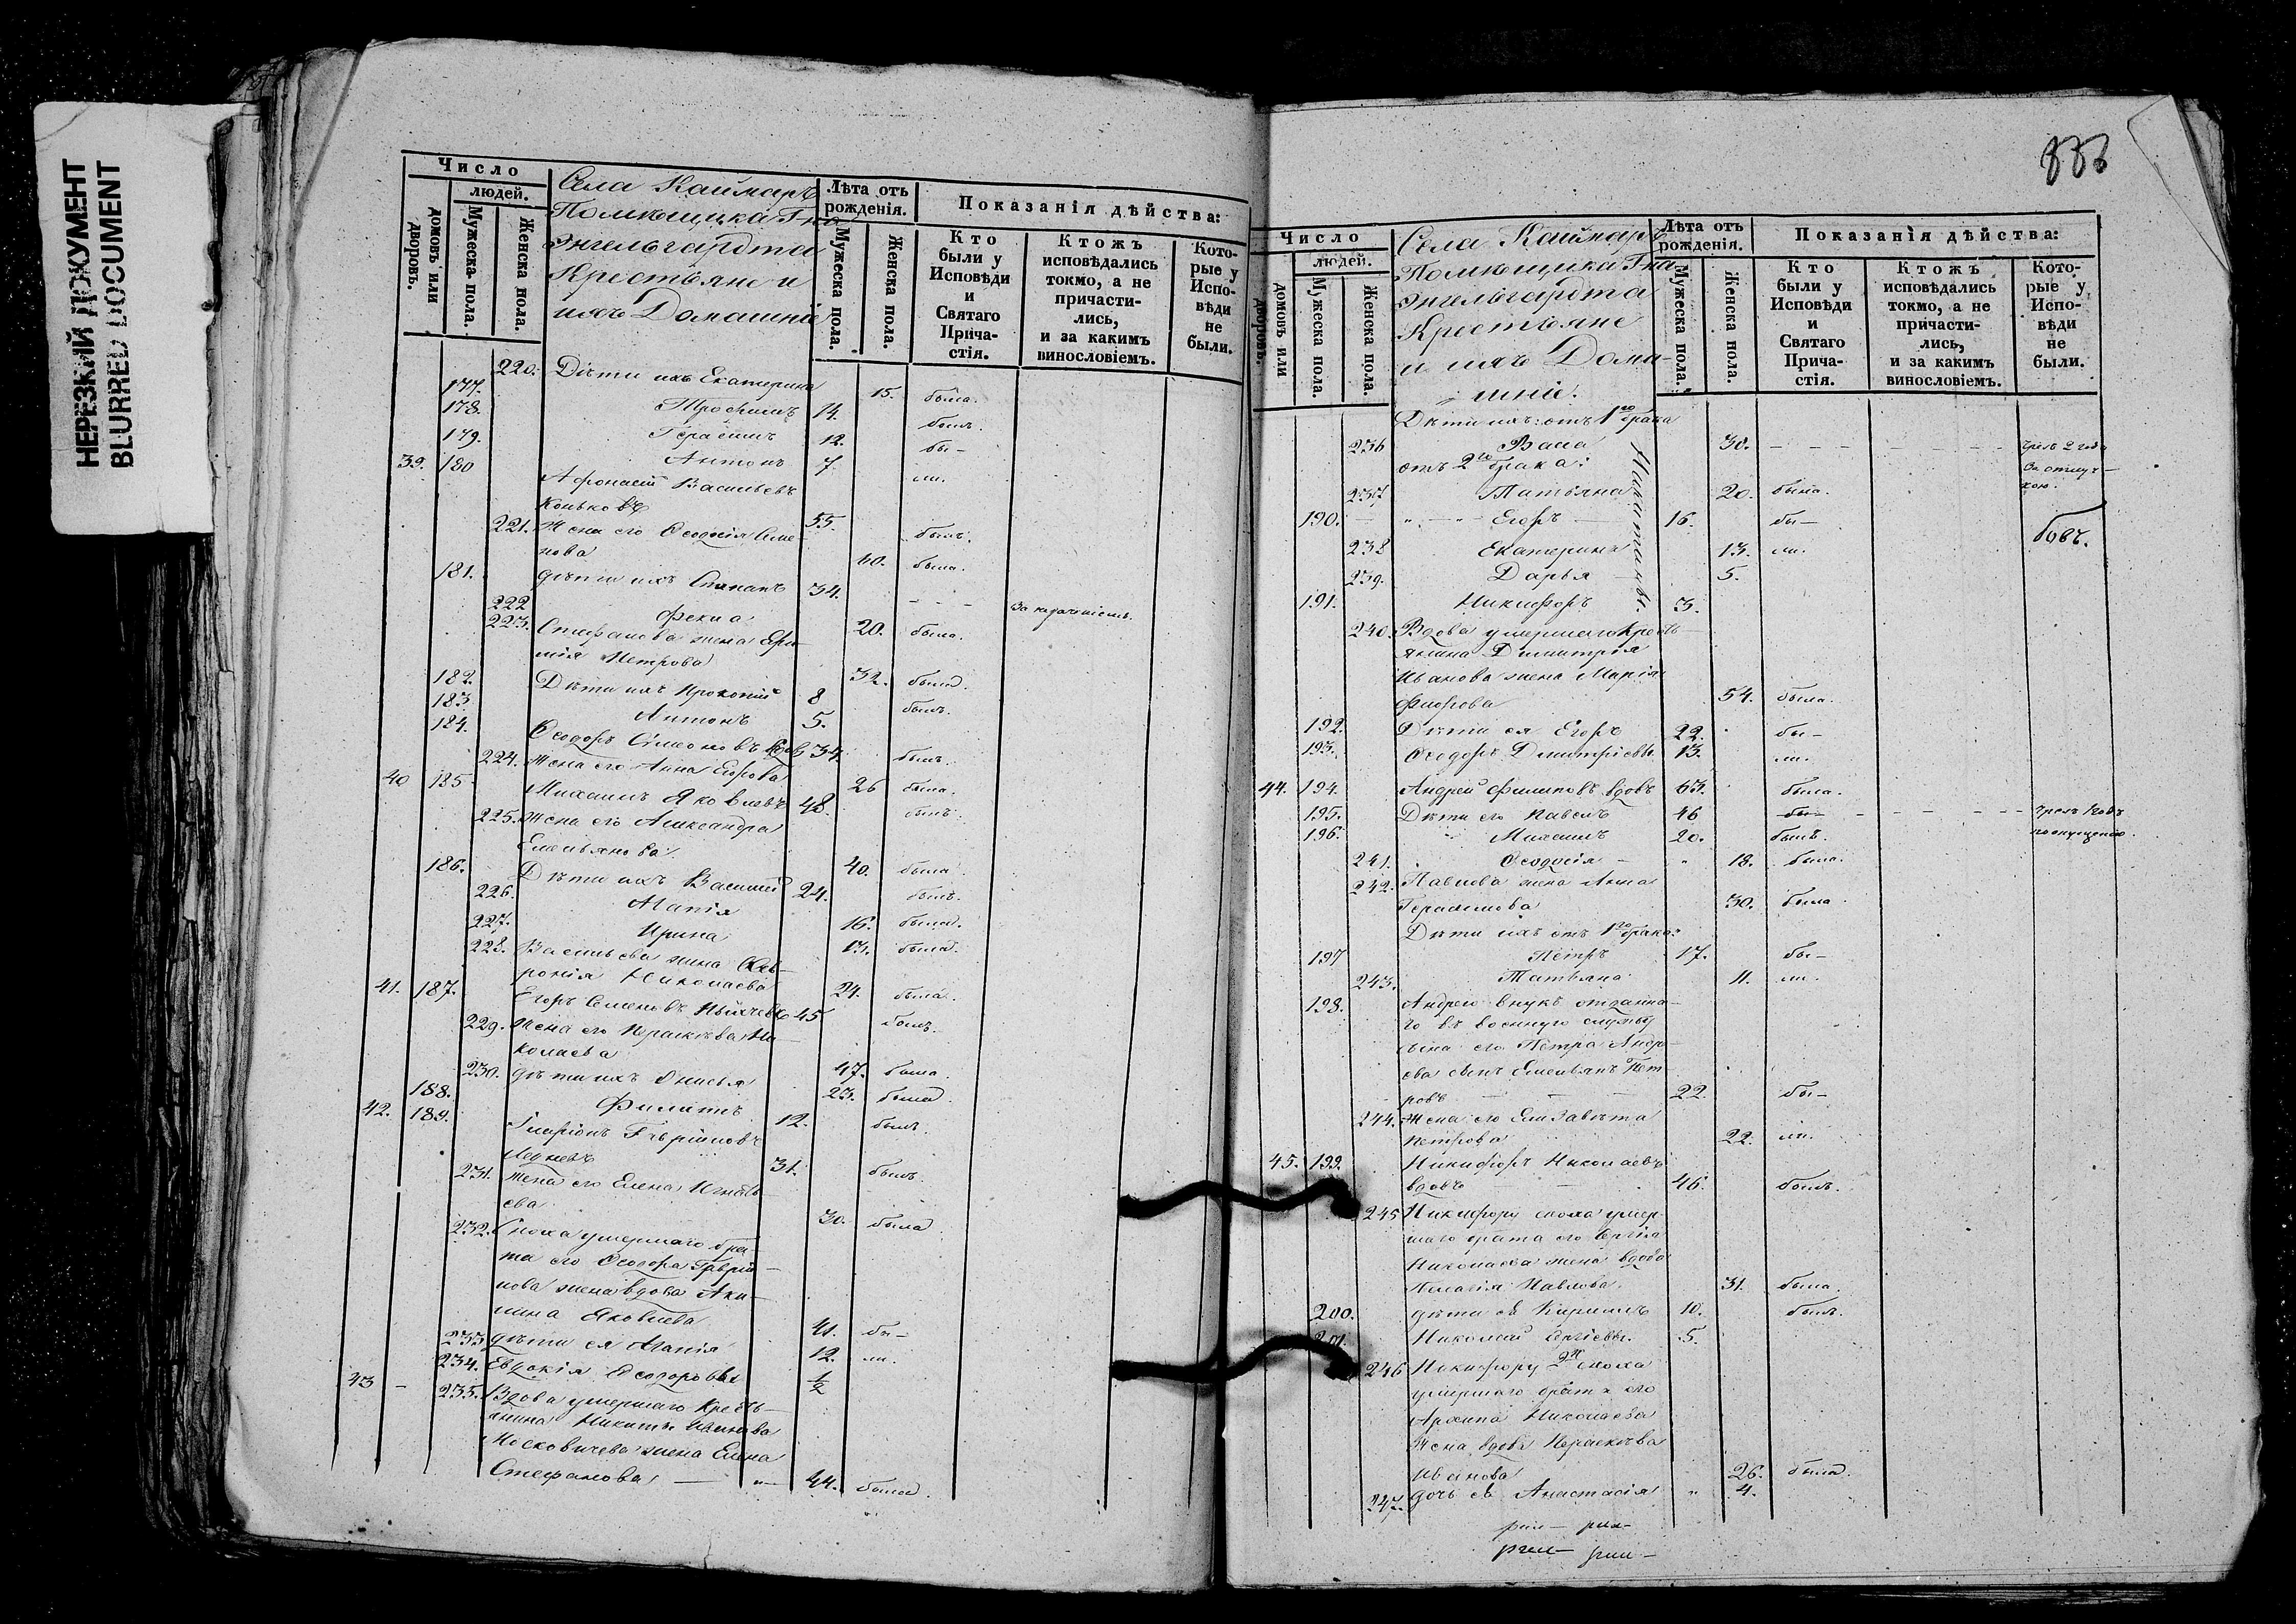 НЕРЕЗКИЙ ДОКУМЕНТ
BLURRED DOCUMENT
Число
людей.
домовъ или дворовъ.
Мужеска пола.
Женска пола.
Села Каймаръ
Помѣщика Г-на
Энгельгардта
Крестьяне и
ихъ Домашніе
Лѣта отъ рожденія.
Мужеска пола.
Женска пола.
Показанія дѣйства:
Кто были у Исповѣди и Святаго Прича-стія.
Ктожъ исповѣдались токмо, а не причасти-лись, и за какимъ винословіемъ.
Кото-рые у Испо-вѣди не были.
220. Дѣти ихъ Екатерина 15. была.
177. Трофимъ 14. былъ.
178. Герасимъ 12. бы-
179. Антонъ 7. ли.
39. 180 Афонасій Васильевъ
Коньковъ 55. былъ.
221. Жена его Ѳеодосія Семе
нова 60. была.
181. дѣти ихъ Степанъ 34. - - -
222 Фекла 20. была.
223. Стефанова жена
Петрова 32. была.
182. Дѣти ихъ Прокопій 8 былъ.
183. Антонъ 5.
184. Ѳеодоръ Симеоновъ 34. былъ.
224. Жена его Анна Егорова 26 была.
40 185 Михаилъ Яковлевъ 48. былъ.
225. Жена его Александра
Емельянова 40. была.
186. Дѣти ихъ Василий 24. былъ.
226. Агапія 16. была.
227. Ирина 13. была.
228. Васильева жена Фев-
ронія Николаева 24. была.
41. 187. Егоръ Семеновъ 45 былъ.
229. Жена его Параскѣва Ни
колаева 47. была.
230. дѣти ихъ Анисья 23. была.
188. Филатъ 12. былъ.
42. 189. Иларіонъ
31. былъ.
231. Жена его Елена Игнать-
ева 30. была
232. Сноха умершаго бра-
та его Ѳеодора
нова жена вдова Аку-
лина Яковлева 41. бы-
233 дѣти ея Агапія 12. ли.
234. Евдокія Ѳеодоровы ½
43 - 235. Вдова умершаго Кресть-
янина Никиты Иванова
Московичева жена Елена
Стефанова - "- 44. была.
Число
людей.
домовъ или дворовъ.
Мужеска пола
Женска пола.
Села Каймаръ
Помѣщика Г-на
Энгельгардта
Крестьяне
и ихъ Дома-
шніе.
Лѣта отъ рожденія.
Мужеска пола.
Женска пола.
Показанія дѣйства:
Кто были у Исповѣди и Святаго Прича-стія.
Ктожъ исповѣдались токмо, а не причасти-лись, и за какимъ винословіемъ.
Кото-рые у Испо-вѣди не были.
Дѣти ихъ: отъ 1го брака
236 30. - - - 2 года
отъ 2го брака: За отлуч-
кою.
237 Татьяна 20. была.
190. Егоръ 16. бы-
238 Екатерина 13. ли.
239. Дарья 5.
191. Никифоръ 3.
Никитины.
240. Вдова умершаго Кресть-
янина Димитрія
Иванова жена Марія
54. была.
192. Дѣти ея Егоръ 22. бы-
193. Ѳеодоръ Дмитріевы 13. ли.
44. 194. Андрей Филиповъ вдовъ 63. была.
195. Дѣти его Павелъ 46 бы- - - -
по опущенію.
196. Михаилъ 20. былъ.
241. Ѳеодосія - " 18. была.
242. Павлова жена Анна
Герасимова 30. была.
Дѣти ихъ отъ 1го брака:
197 Петръ 17. бы-
243. Татьяна 11. ли.
198. Андрею внукъ отданна-
го въ военную службу
сына его Петра Андре-
ева сынъ Емельянъ Пет
ровъ - - 22. бы-
244. Жена его Елизавѣта
Петрова 22. ли.
45. 199. Никифоръ Николаевъ
вдовъ - 46. былъ.
245 Никифору сноха умер-
шаго брата его Сергія
Николаева жена вдова
Пелагія Павлова. 31. была.
200. дѣти ея Кирилъ 10. былъ.
201. Николай Сергіевы. 5.
246 Никифору 2я сноха
умершаго брата его
Архипа Николаева
Жена вдова Параскѣва
Иванова 26. была.
247. дочь ея Анастасія " 4.